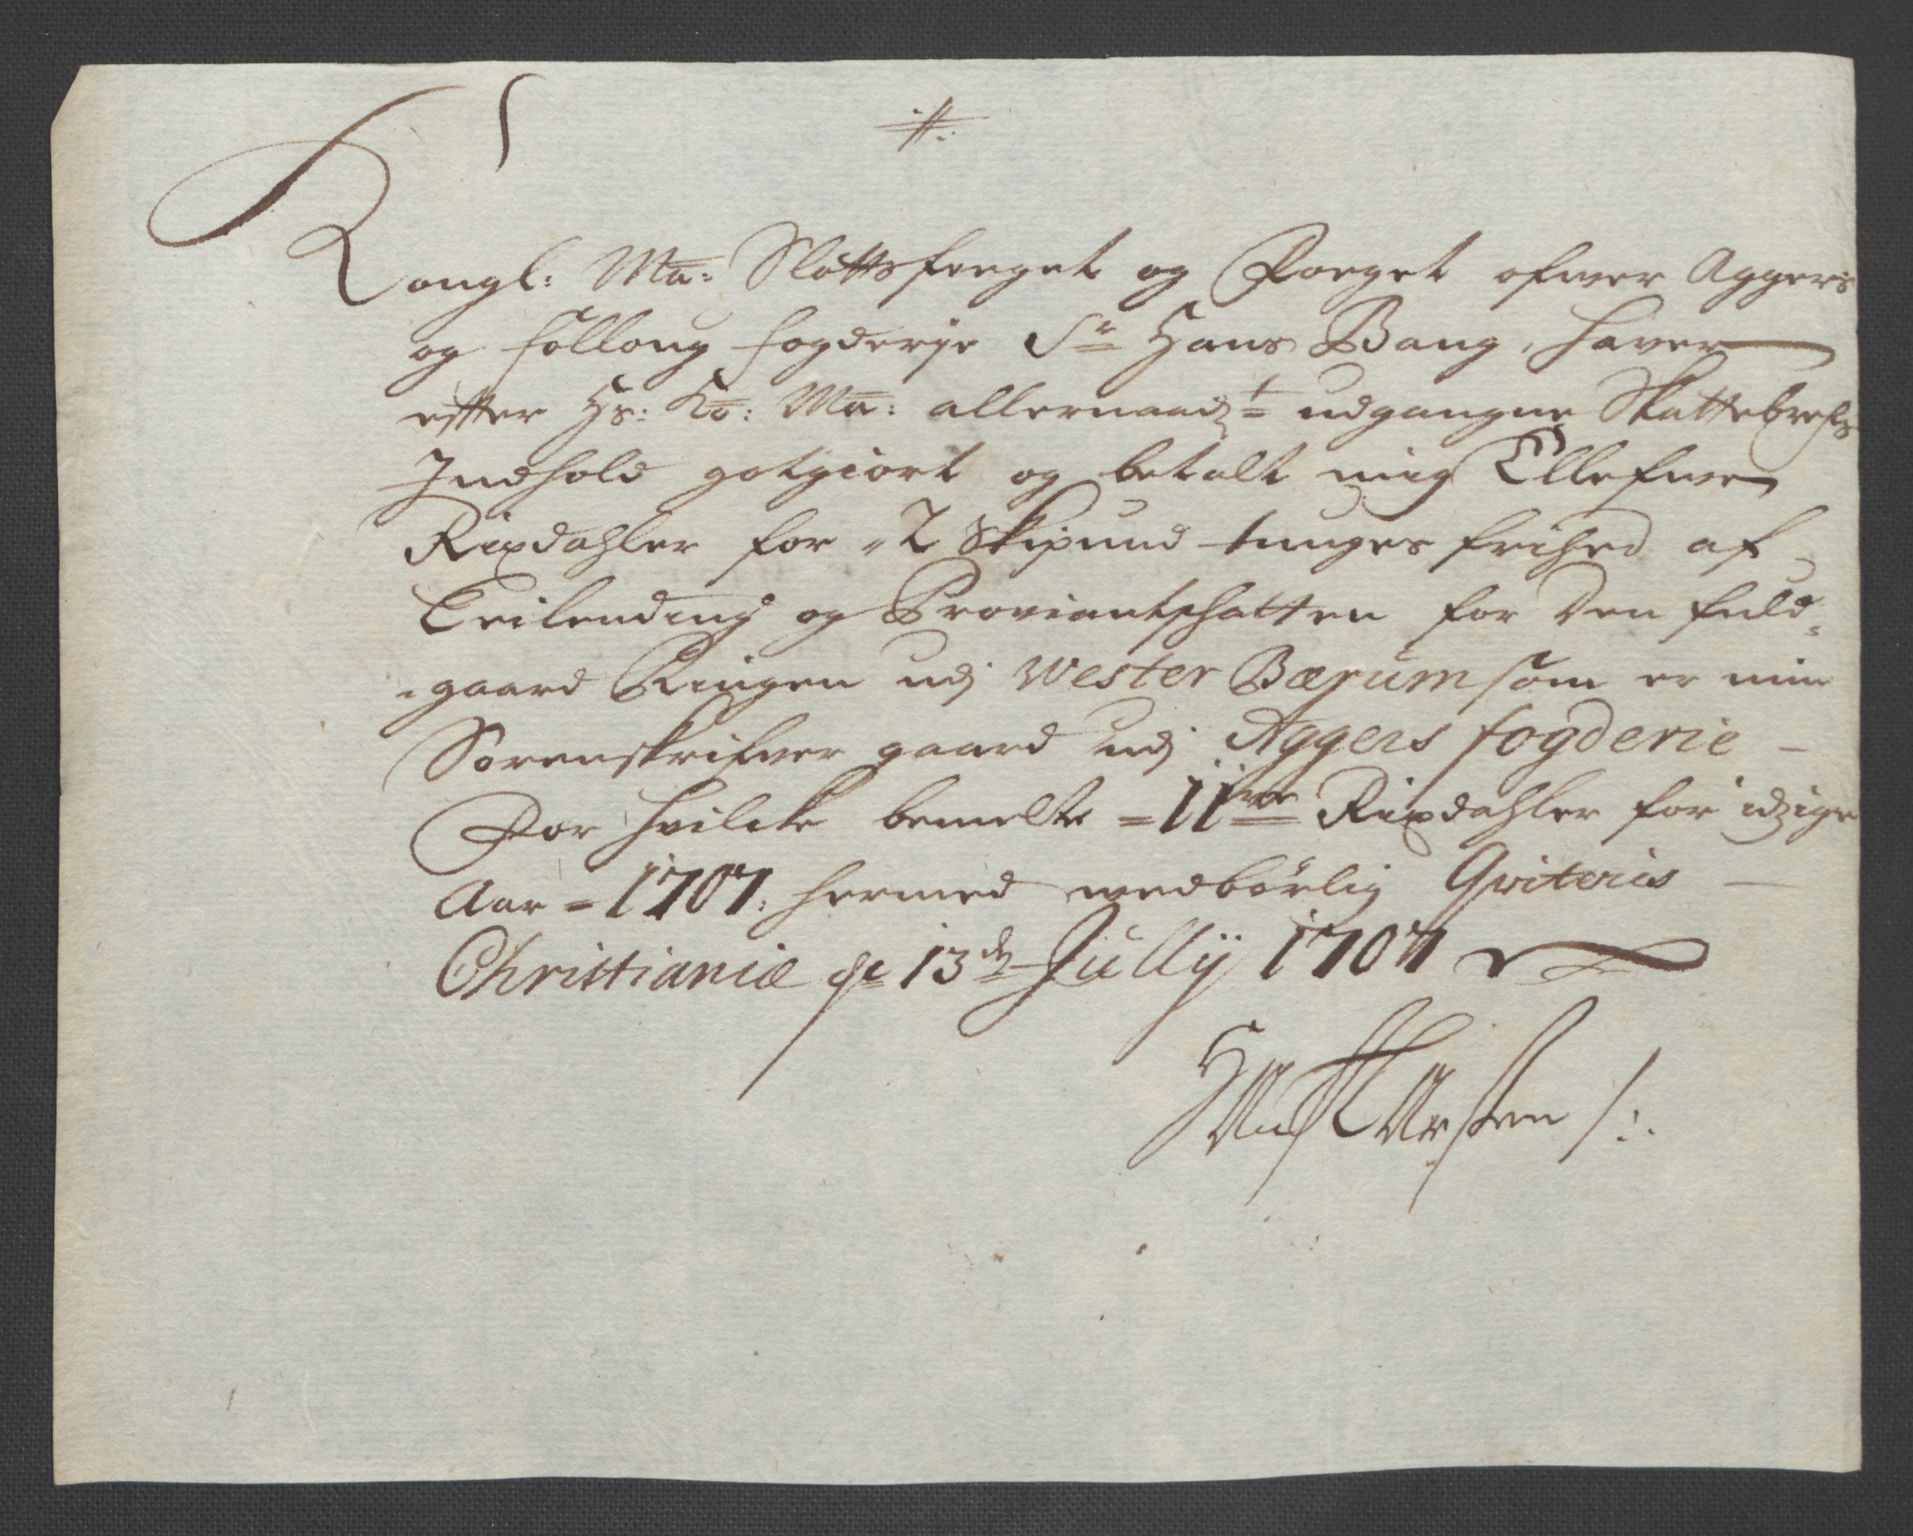 Kongl: Ma: Slottsfoeget og Foeget ofwer Aggers
og Folloug fogderje Sr Hans Bang, haver
effter Hs: Ko: Ma: allernaadt udgangne Skattebrefs
Indhold gotgiort og betalt mig Ellefwe
Rixdahler for 2 Skipund tunges frihed af
Leilending og Proviantschatten for den fuld-
gaard Ringen udj Wester Bærum som er min
Sorenskrifwer gaard udj Aggers fogderie -
For hvilcke bemelte = 11we Rixdahler for idzige
Aar = 1707. hermed wedbørlig Qviteris -
Christianiæ de 13de Jullij 1707
Hans Larsen /:.